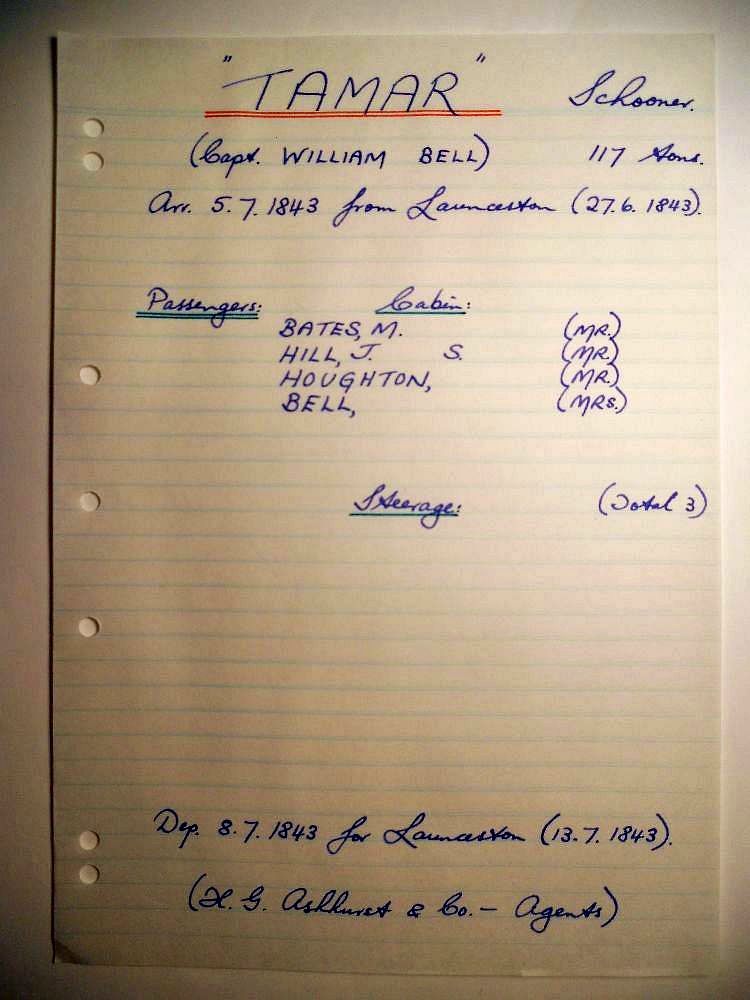 "TAMAR" Schooner.
(Capt. WILLIAM BELL) 117 tons.
Arr. 5.7.1843 from Launceston (27.6.1843).
Passengers: Cabin:
BATES, M. (MR.)
HILL, J. S. (MR.)
HOUGHTON, (MR.)
BELL, (MRS.)
Steerage: (Total 3)
Dep. 8.7.1843 for Launceston (13.7.1843).
(H. G. Ashhurst & Co. - Agents)